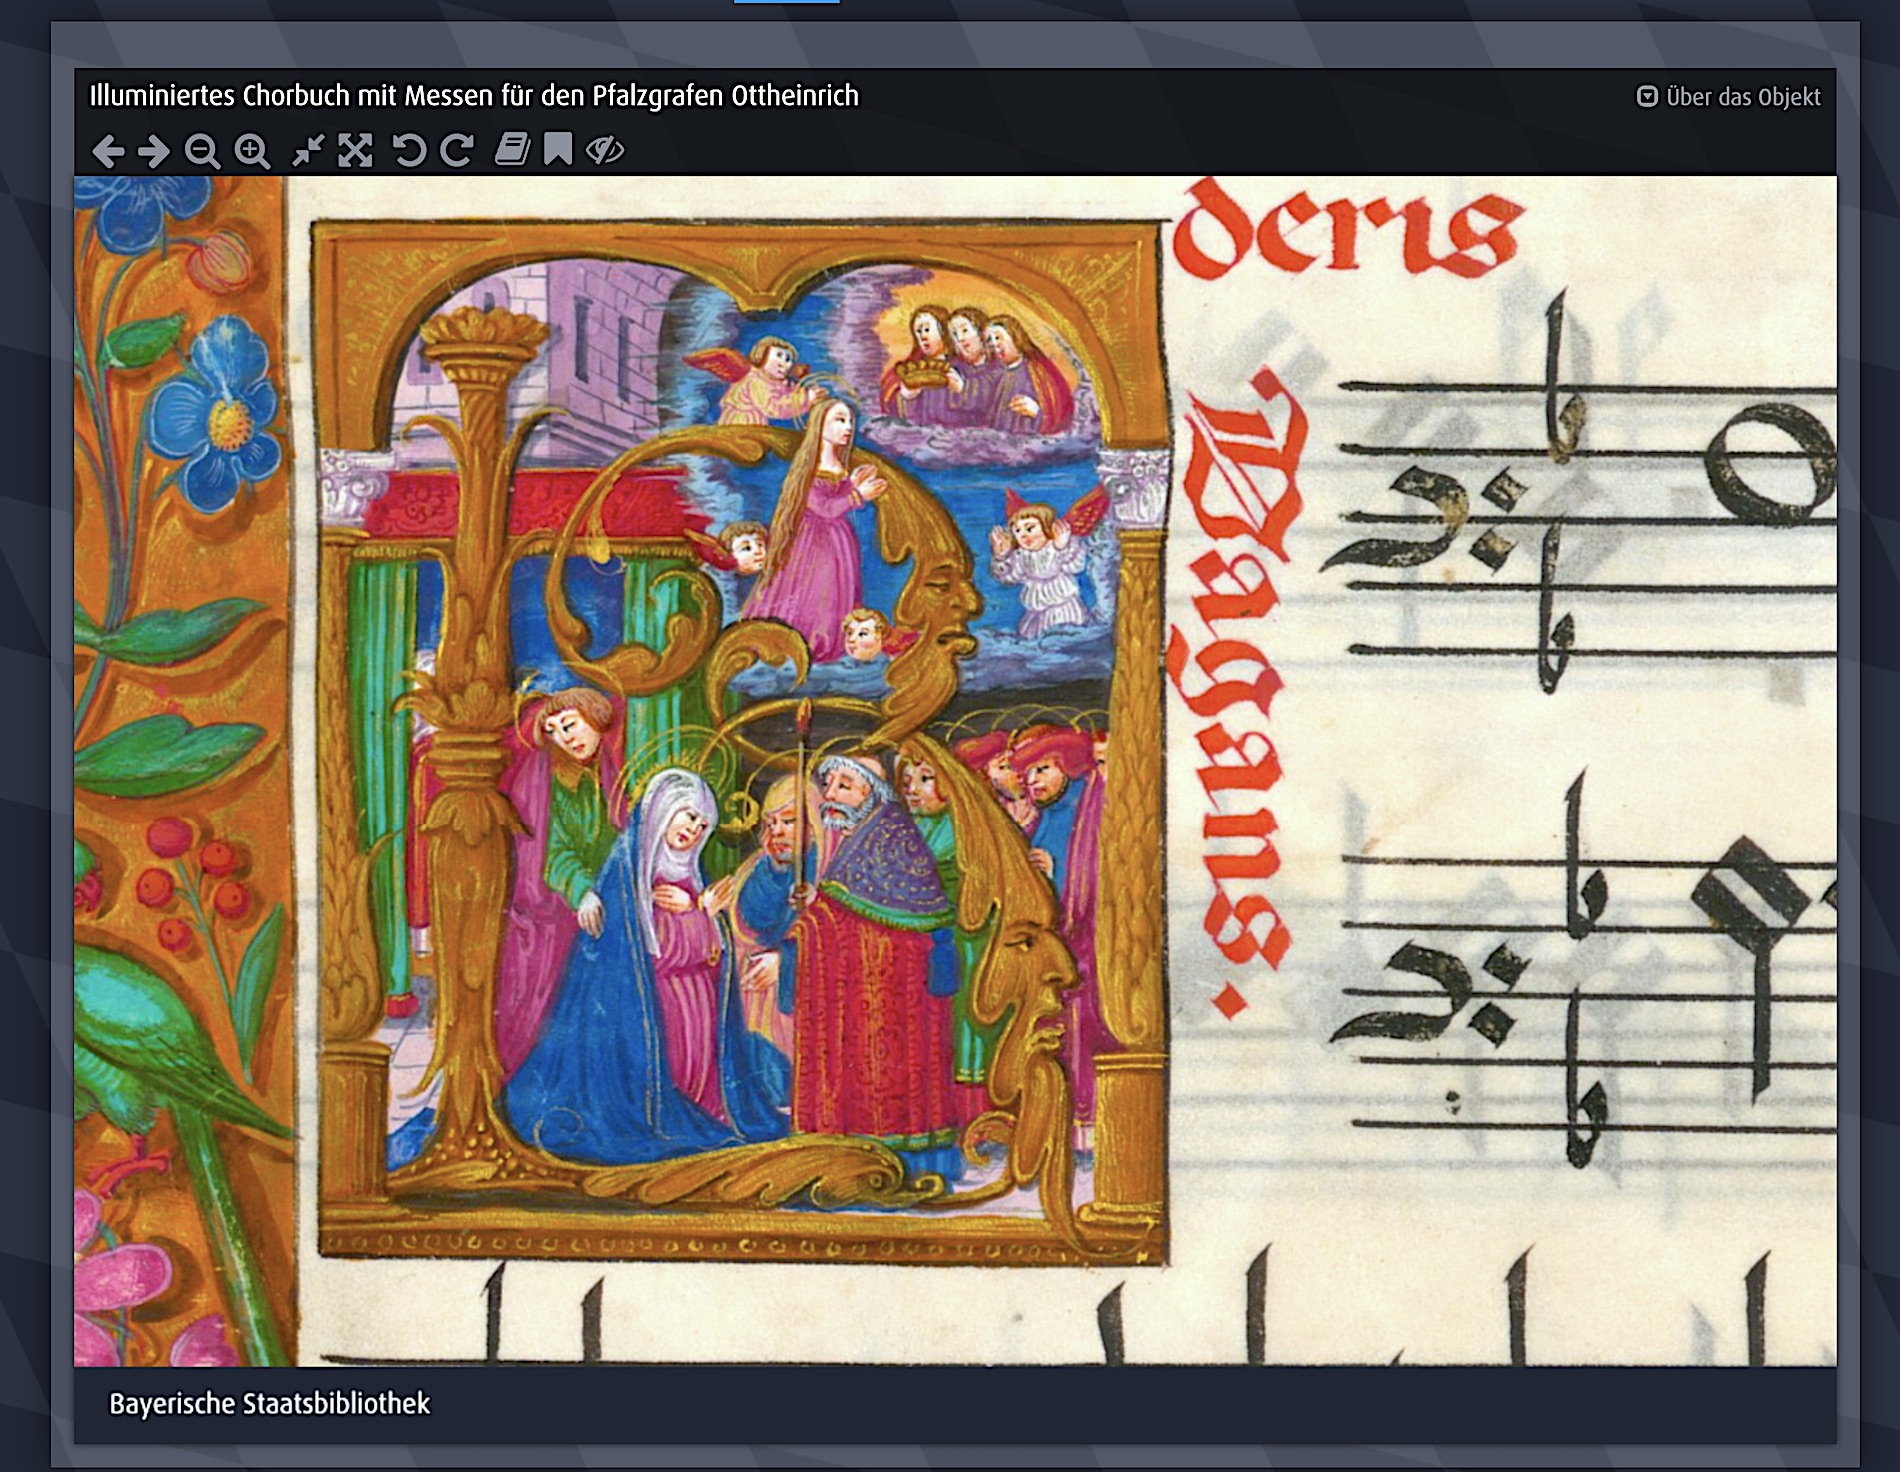 Illuminiertes Chorbuch mit Messen für den Pfalzgrafen Ottheinrich
Über das Objekt
deris
Vagans.
Bayerische Staatsbibliothek